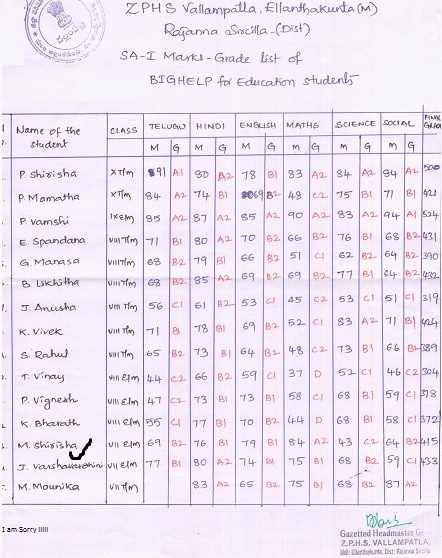 ZPHS Vallampatla, Ellanthakunta(M)
Rajanna Sircilla-(Dist)
SA-I Marks-Grade list of
BIGHELP for Education students
Name of the student CLASS TELUGU HINDI ENGLISH MATHS SCIENCE SOCIAL FINAL GRADE
M G M G M G M G M G M G
P. Shirisha X T/m 91 A1 80 A2 78 B1 83 A2 84 A2 84 A2 500
P. Mamatha X T/m 84 A2 74 B1 69 B2 48 C2 75 B1 71 B1 421
P. Vamshi IX E/m 85 A2 87 A2 85 A2 90 A2 83 A2 94 A1 524
E. Spandana VIII T/m 71 B1 80 A2 70 B2 66 B2 76 B1 68 B2 431
G. Manasa VIII T/m 68 B2 79 B1 66 B2 51 C1 62 B2 64 B2 390
B. Likhitha VIII T/m 68 B2 85 A2 69 B2 69 B2 77 B1 64 B2 432
J. Anusha VIII T/m 56 C1 61 B2 53 C1 45 C2 53 C1 51 C1 319
K. Vivek VIII T/m 71 B1 78 B1 69 B2 52 C1 83 A2 71 B1 424
S. Rahul VIII T/m 65 B2 73 B1 64 B2 48 C2 73 B1 66 B2 389
T. Vinay VIII E/m 44 C2 66 B2 59 C1 37 D 52 C1 46 C2 304
P. Vignesh VIII E/m 47 C2 73 B1 73 B1 58 C1 68 B1 59 C1 378
K. Bharath VIII E/m 55 C1 77 B1 70 B2 44 D 68 B1 58 C1 372
M. Shirisha VII E/m 69 B2 76 B1 79 B1 84 A2 43 C2 64 B2 415
J. Varshavardhini VII E/m 77 B1 80 A2 74 B1 75 B1 68 B2 59 C1 433
M. Mounika VII T/m 83 A2 65 B2 75 B1 68 B2 87 A2
I am Sorry !!!!!
Gazetted Headmaster G
Z.P.H.S. VALLAMPATLA,
Mdl: Ellanthakunta, Dist: Rajanna Sircilla